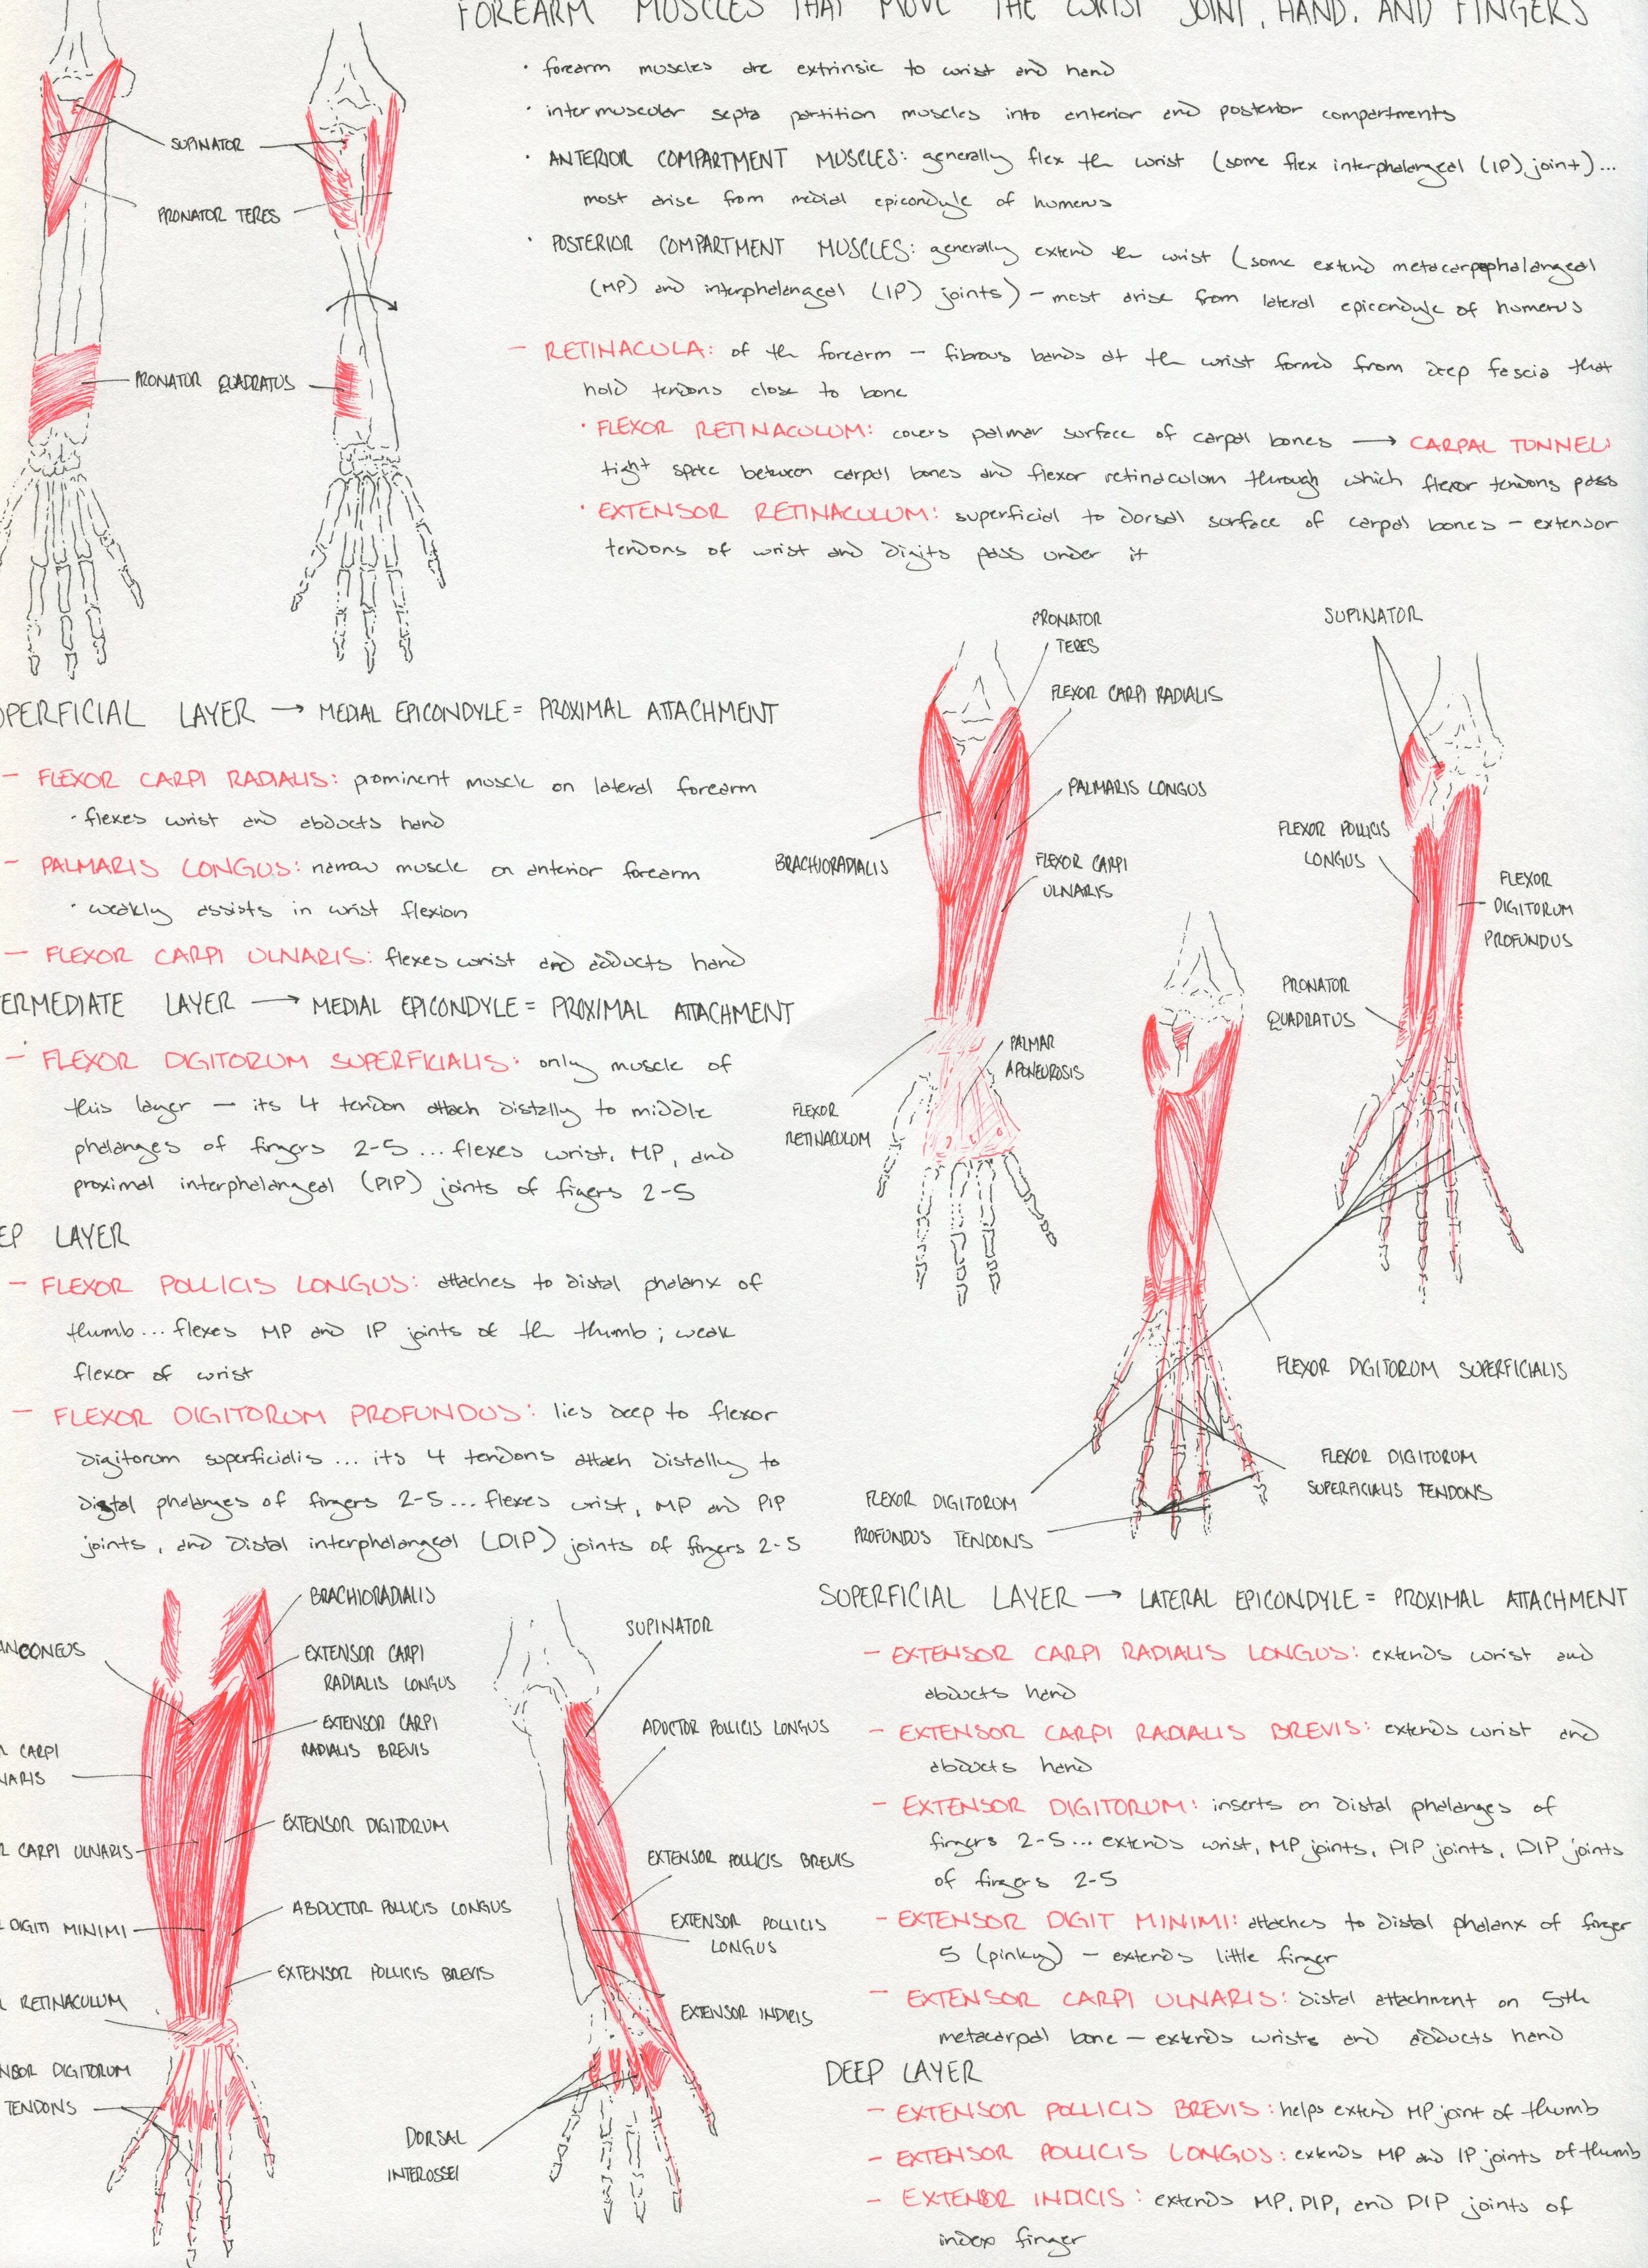 FOREARM MUSCLES THAT MOVE THE WRIST JOINT, HAND, AND FINGERS
· forearm muscles are extrinsic to wrist and hand
· intermuscular septa partition muscles into anterior and posterior compartments
· ANTERIOR COMPARTMENT MUSCLES: generally flex the wrist (some flex interphalangeal (IP) joint)...
most arise from medial epicondyle of humerus
· POSTERIOR COMPARTMENT MUSCLES: generally extend the wrist (some extend metacarpophalangeal
(MP) and interphalangeal (IP) joints) – most arise from lateral epicondyle of humerus
– RETINACULA: of the forearm – fibrous bands at the wrist formed from deep fascia that
hold tendons close to bone
· FLEXOR RETINACULUM: covers palmar surface of carpal bones → CARPAL TUNNEL:
tight space between carpal bones and flexor retinaculum through which flexor tendons pass
· EXTENSOR RETINACULUM: superficial to dorsal surface of carpal bones – extensor
tendons of wrist and digits pass under it
SUPINATOR
PRONATOR TERES
PRONATOR QUADRATUS
OPERFICIAL LAYER → MEDIAL EPICONDYLE = PROXIMAL ATTACHMENT
– FLEXOR CARPI RADIALIS: prominent muscle on lateral forearm
· flexes wrist and abducts hand
– PALMARIS LONGUS: narrow muscle on anterior forearm
· weakly assists in wrist flexion
– FLEXOR CARPI ULNARIS: flexes wrist and adducts hand
ERMEDIATE LAYER → MEDIAL EPICONDYLE = PROXIMAL ATTACHMENT
– FLEXOR DIGITORUM SUPERFICIALIS: only muscle of
this layer – its 4 tendon attach distally to middle
phalanges of fingers 2-5 ... flexes wrist, MP, and
proximal interphalangeal (PIP) joints of figers 2-5
EP LAYER
– FLEXOR POLLICIS LONGUS: attaches to distal phalanx of
thumb... flexes MP and IP joints of the thumb; weak
flexor of wrist
– FLEXOR DIGITORUM PROFUNDUS: lies deep to flexor
digitorum superficialis ... its 4 tendons attach distally to
distal phalanges of fingers 2-5... flexes wrist, MP and PIP
joints, and distal interphalangeal (DIP) joints of fingers 2-5
PRONATOR
TERES
FLEXOR CARPI RADIALIS
PALMARIS LONGUS
BRACHIORADIALIS
FLEXOR CARPI
ULNARIS
PALMAR
APONEUROSIS
FLEXOR
RETINACULUM
SUPINATOR
FLEXOR POLLICIS
LONGUS
FLEXOR
DIGITORUM
PROFUNDUS
PRONATOR
QUADRATUS
FLEXOR DIGITORUM SUPERFICIALIS
FLEXOR DIGITORUM
SUPERFICIALIS TENDONS
FLEXOR DIGITORUM
PROFUNDUS TENDONS
BRACHIORADIALIS
ANCONEUS
EXTENSOR CARPI
RADIALIS LONGUS
EXTENSOR CARPI
RADIALIS BREVIS
R CARPI
NARIS
EXTENSOR DIGITORUM
R CARPI ULNARIS
ABDUCTOR POLLICIS LONGUS
R DIGITI MINIMI
EXTENSOR POLLICIS BREVIS
R RETINACULUM
NSOR DIGITORUM
TENDONS
SUPINATOR
ADUCTOR POLLICIS LONGUS
EXTENSOR POLLICIS BREVIS
EXTENSOR POLLICIS
LONGUS
EXTENSOR INDICIS
DORSAL
INTEROSSEI
SUPERFICIAL LAYER → LATERAL EPICONDYLE = PROXIMAL ATTACHMENT
– EXTENSOR CARPI RADIALIS LONGUS: extends wrist and
abducts hand
– EXTENSOR CARPI RADIALIS BREVIS: extends wrist and
abducts hand
– EXTENSOR DIGITORUM: inserts on distal phalanges of
fingers 2-5... extends wrist, MP joints, PIP joints, DIP joints
of fingers 2-5
– EXTENSOR DIGIT MINIMI: attaches to distal phalanx of finger
5 (pinky) – extends little finger
– EXTENSOR CARPI ULNARIS: distal attachment on 5th
metacarpal bone – extends wrists and adducts hand
DEEP LAYER
– EXTENSOR POLLICIS BREVIS: helps extend MP joint of thumb
– EXTENSOR POLLICIS LONGUS: extends MP and IP joints of thumb
– EXTENSOR INDICIS: extends MP, PIP, and DIP joints of
index finger